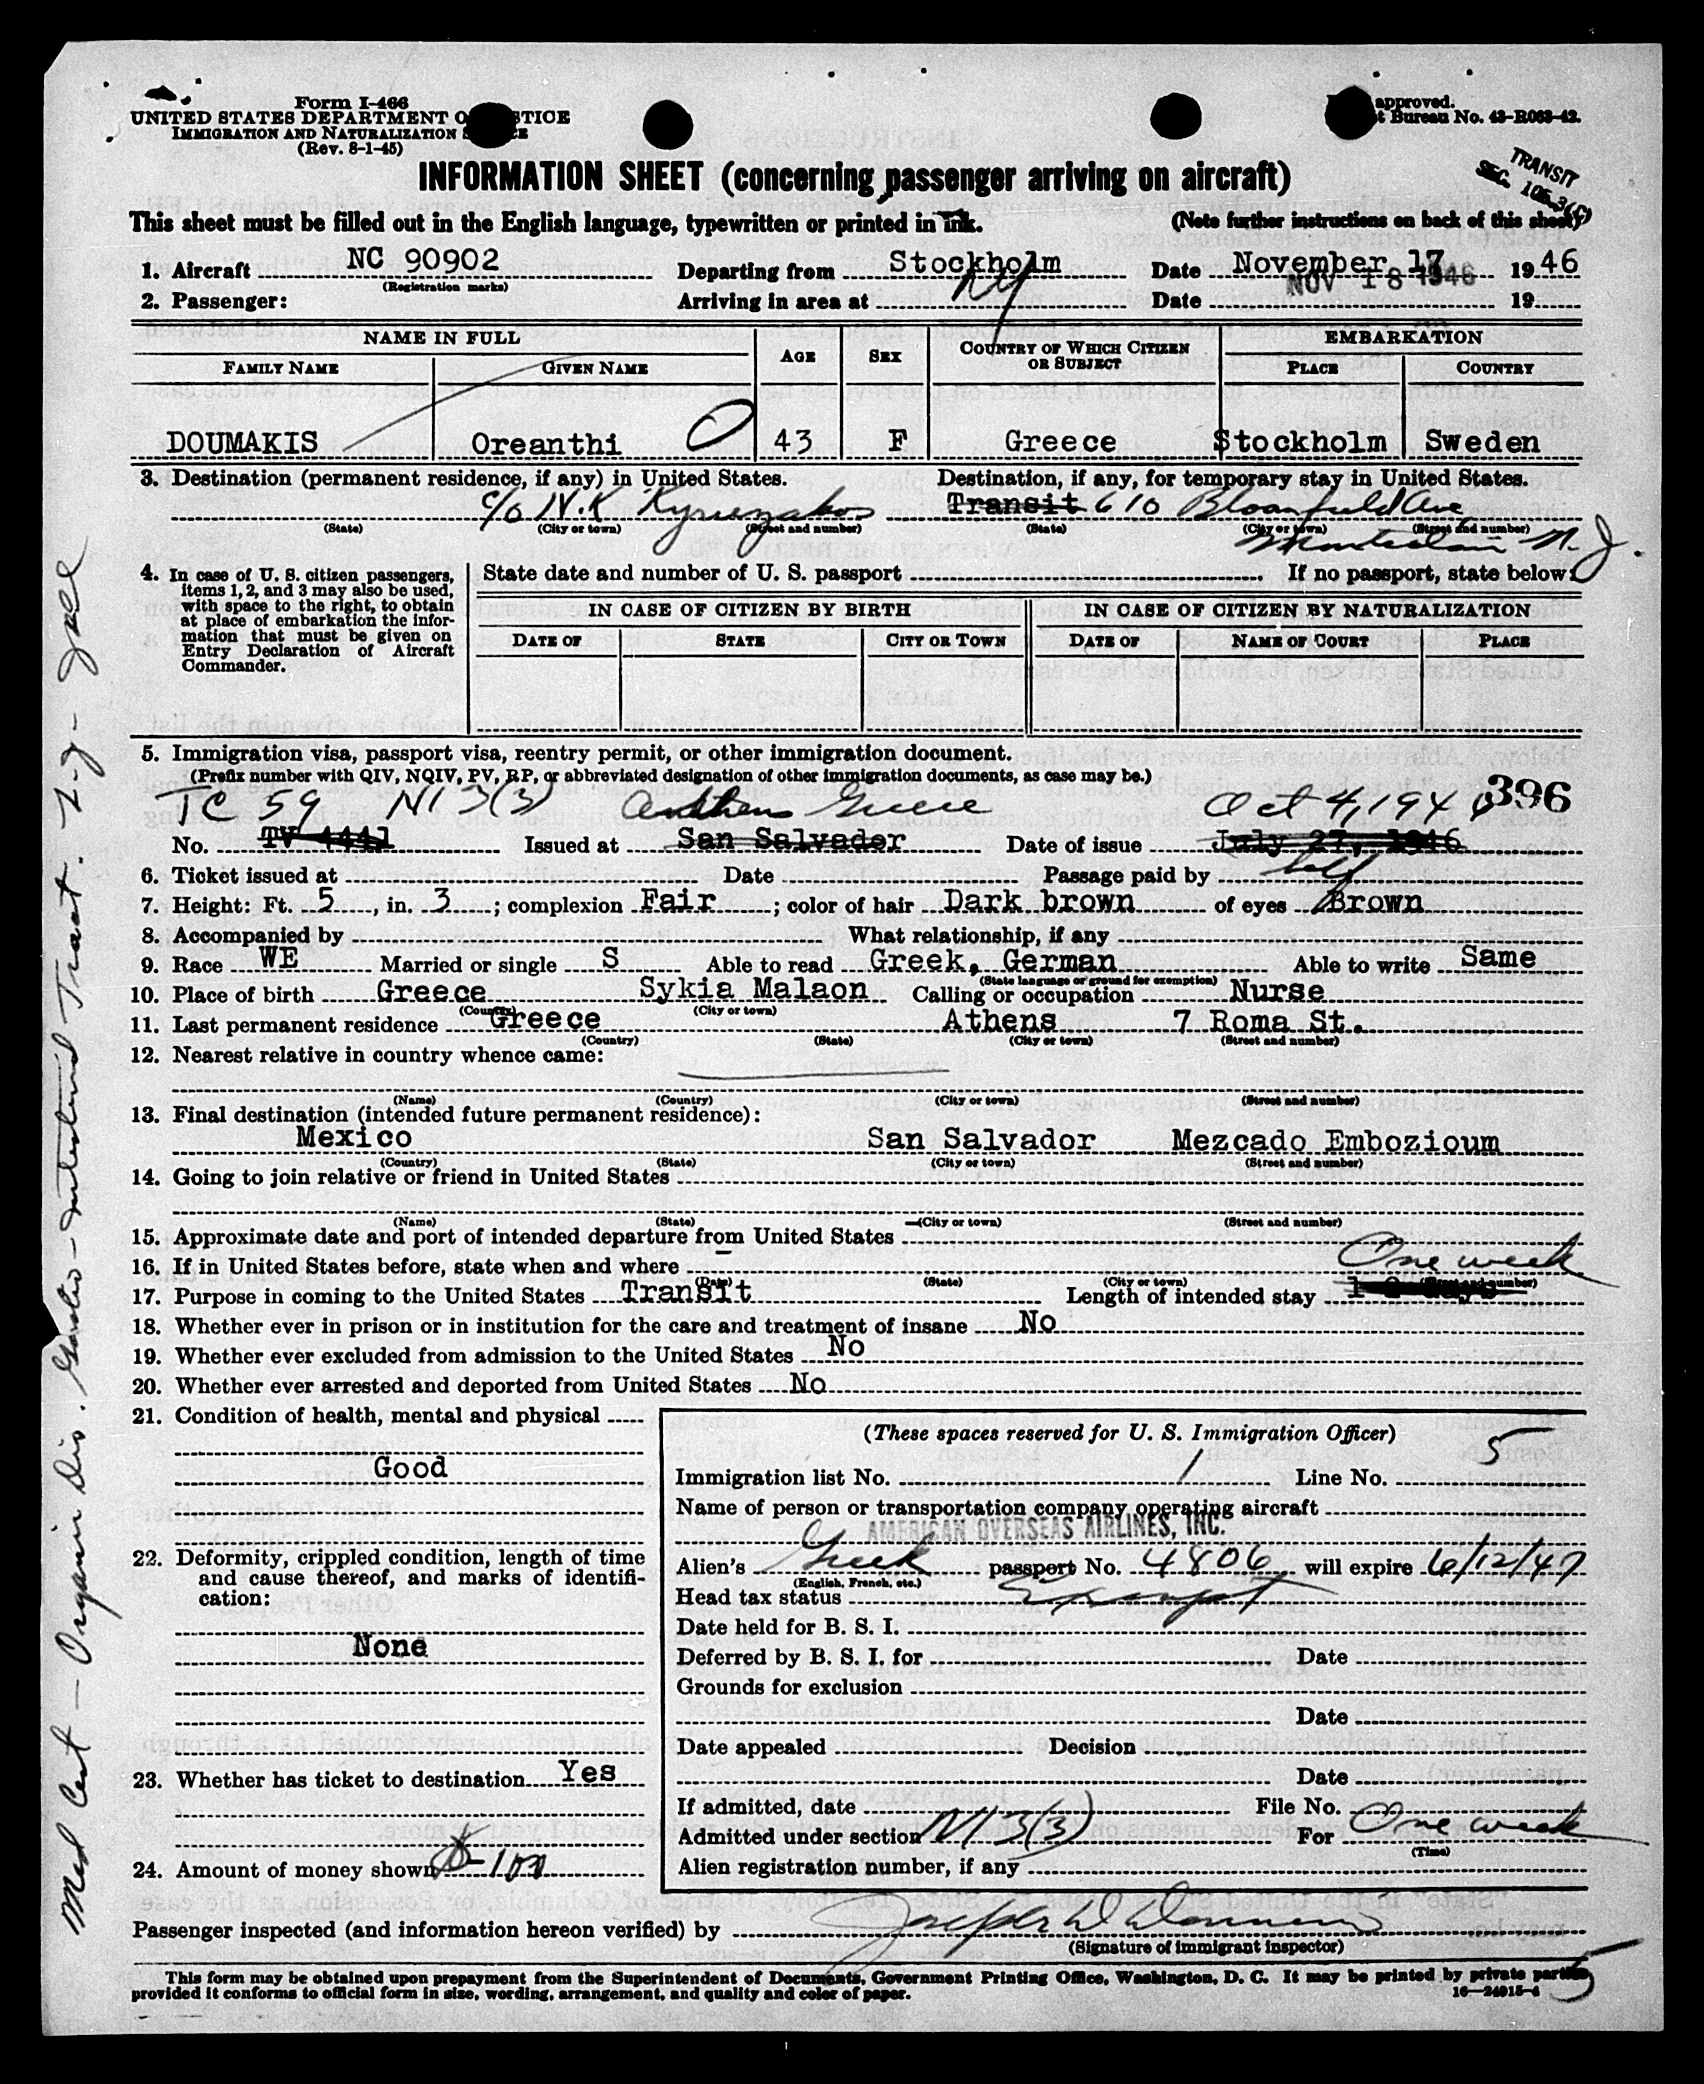 Form I-466
UNITED STATES DEPARTMENT OF JUSTICE
IMMIGRATION AND NATURALIZATION SERVICE
(Rev. 8-1-45)
approved.
Bureau No. 43-R063-42.
INFORMATION SHEET (concerning passenger arriving on aircraft)
TRANSIT
SEC. 105-3(f)
This sheet must be filled out in the English language, typewritten or printed in ink. (Note further instructions on back of this sheet)
1. Aircraft NC 90902 Departing from Stockholm Date November 17 1946
(Registration marks)
2. Passenger: Arriving in area at NY Date NOV 18 1946 19
NAME IN FULL AGE SEX COUNTRY OF WHICH CITIZEN OR SUBJECT EMBARKATION
FAMILY NAME GIVEN NAME PLACE COUNTRY
DOUMAKIS Oreanthi 43 F Greece Stockholm Sweden
3. Destination (permanent residence, if any) in United States. Destination, if any, for temporary stay in United States.
c/o N.K. Transit 610 Bloomfield Ave
(State) (City or town) (Street and number) (State) (City or town) (Street and number)
Montclair N.J.
4. In case of U. S. citizen passengers, items 1, 2, and 3 may also be used, with space to the right, to obtain at place of embarkation the information that must be given on Entry Declaration of Aircraft Commander.
State date and number of U. S. passport If no passport, state below:
IN CASE OF CITIZEN BY BIRTH IN CASE OF CITIZEN BY NATURALIZATION
DATE OF STATE CITY OR TOWN DATE OF NAME OF COURT PLACE
5. Immigration visa, passport visa, reentry permit, or other immigration document.
(Prefix number with QIV, NQIV, PV, RP, or abbreviated designation of other immigration documents, as case may be.)
TC 59 NI 3(3) Athens Greece Oct 4, 1946 396
No. TV 4441 Issued at San Salvador Date of issue July 27, 1946
6. Ticket issued at Date Passage paid by Self
7. Height: Ft. 5, in. 3; complexion Fair; color of hair Dark brown of eyes Brown
8. Accompanied by What relationship, if any
9. Race WE Married or single S Able to read Greek, German Able to write Same
(State language or ground for exemption)
10. Place of birth Greece Sykia Malaon Calling or occupation Nurse
(Country) (City or town)
11. Last permanent residence Greece Athens 7 Roma St.
(Country) (State) (City or town) (Street and number)
12. Nearest relative in country whence came:
(Name) (Country) (City or town) (Street and number)
13. Final destination (intended future permanent residence):
Mexico San Salvador Mezcado Embozioum
(Country) (State) (City or town) (Street and number)
14. Going to join relative or friend in United States
(Name) (State) (City or town) (Street and number)
15. Approximate date and port of intended departure from United States
16. If in United States before, state when and where One week
(Date) (State) (City or town) (Street and number)
17. Purpose in coming to the United States Transit Length of intended stay 1-2 days
18. Whether ever in prison or in institution for the care and treatment of insane No
19. Whether ever excluded from admission to the United States No
20. Whether ever arrested and deported from United States No
21. Condition of health, mental and physical
Good
22. Deformity, crippled condition, length of time and cause thereof, and marks of identification:
None
23. Whether has ticket to destination Yes
24. Amount of money shown $-100
(These spaces reserved for U. S. Immigration Officer)
Immigration list No. 1 Line No. 5
Name of person or transportation company operating aircraft
AMERICAN OVERSEAS AIRLINES, INC.
Alien's Greek passport No. 4806 will expire 6/12/47
(English, French, etc.)
Head tax status Exempt
Date held for B. S. I.
Deferred by B. S. I. for Date
Grounds for exclusion
Date
Date appealed Decision
Date
If admitted, date File No.
Admitted under section NI 3(3) For One week
(Time)
Alien registration number, if any
Passenger inspected (and information hereon verified) by Joseph W
(Signature of immigrant inspector)
This form may be obtained upon prepayment from the Superintendent of Documents, Government Printing Office, Washington, D. C. It may be printed by private parties
provided it conforms to official form in size, wording, arrangement, and quality and color of paper.
16—24915-4
5
Med Cert - Organic Dis. Gastro-intestinal Tract.